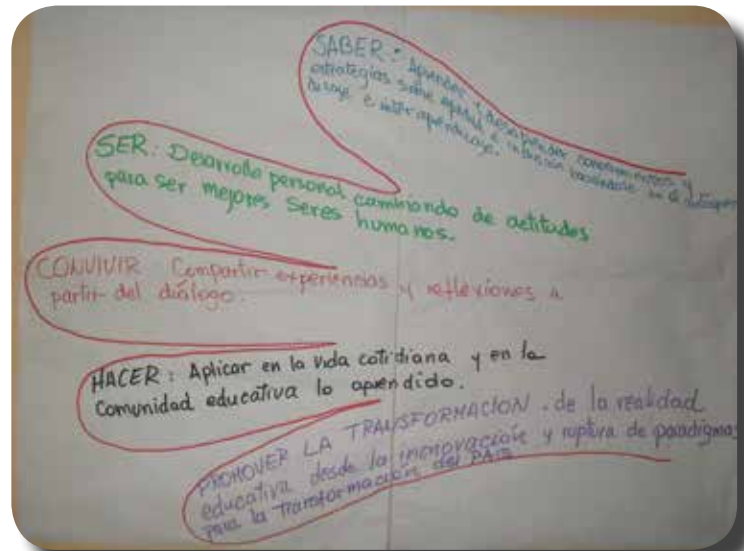 SABER: Aprender y desaprender conocimientos y
estrategias sobre equidad e inclusión basándose en el autoapren
dizaje e interaprendizaje.
SER: Desarrollo personal cambiando de actitudes
para ser mejores seres humanos.
CONVIVIR Compartir experiencias y reflexiones a
partir del diálogo.
HACER: Aplicar en la vida cotidiana y en la
Comunidad educativa lo aprendido.
PROMOVER LA TRANSFORMACION. de la realidad
educativa desde la innovación y ruptura de paradigmas
para la transformación del PAIS